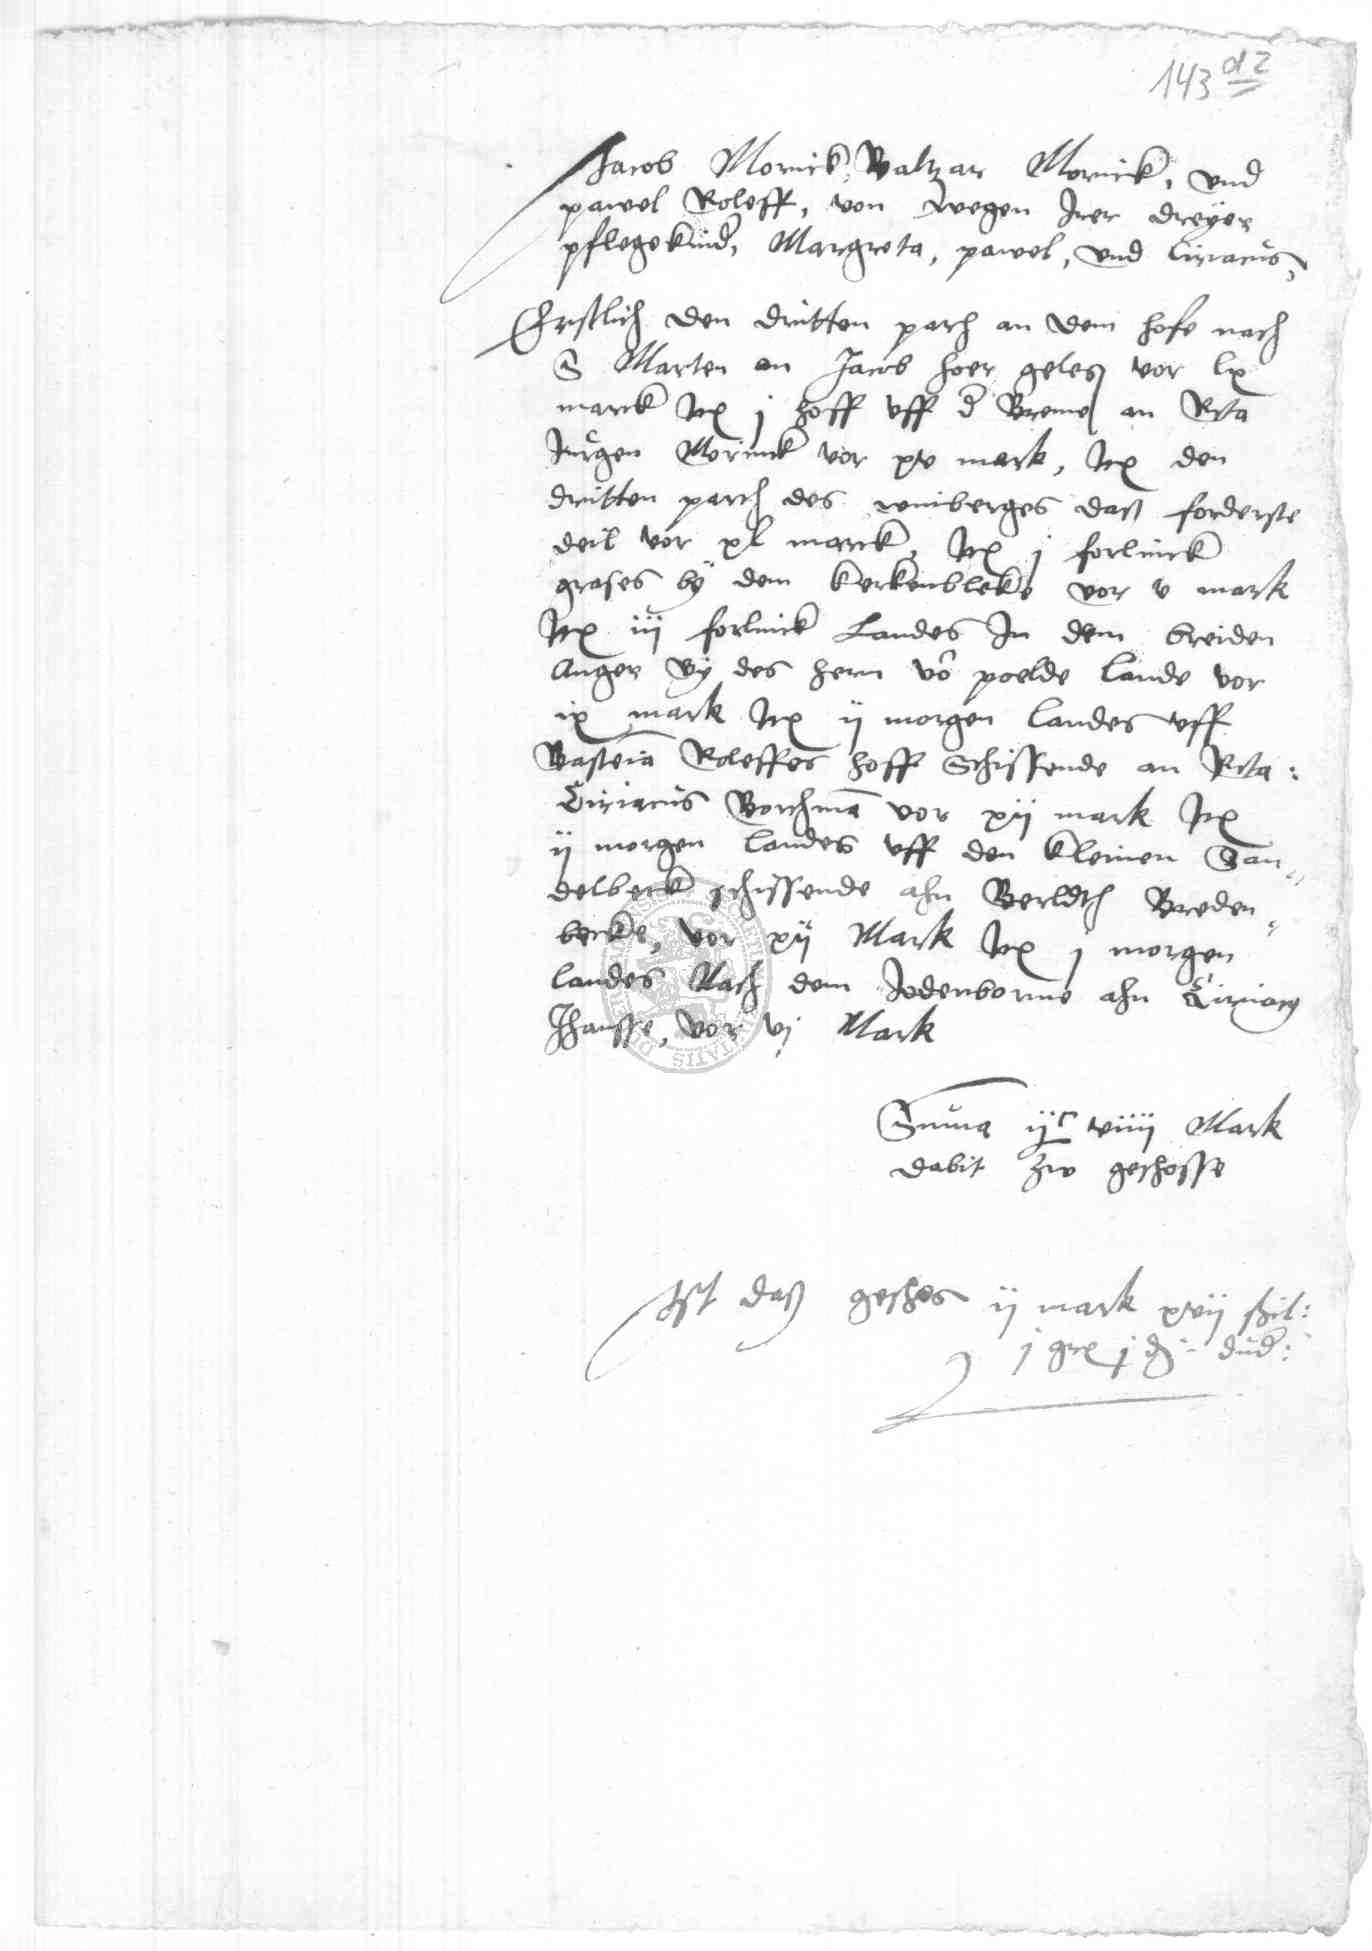 143 d2
Jacob Mornick, Baltzar Mornick, vnd
pawel Roleff, von wegen Irer dreyer
pflegekinder, Margreta, pawel, vnd Ciriacus,
Erstlich den dritten parch an dem hofe nach
S Marten an Jacob hoer geleg vor lx
marck Itē j hoff vff d Breme an Rēta
Jurgen Mornick vor xv mark, Itē den
dritten parch des winberges daß forderste
deil vor xl marck, Itē j forlinck
grases by dem kerkenbleke vor v mark
Itē iij forlinck Landes In dem breiden
Anger by des hern vō poelde lande vor
ix mark Itē ij morgen landes vff
Basteiā Roleffes hoff Schissende an Rēta:
Ciriacus Borchmā vor xij mark Itē
ij morgen landes vff den kleinen San
delbeck schissende ahn Berldth Breden
becke, vor xij Mark Itē j morgen
landes Nach dem Jodenborne ahn Ciriacy
Hansse, vor vj Mark
Summa ijc viiij Mark
dabit zw geschosse
Ist daß geschos ij mark xvij schil:
j gr j d dud:
DUD CIVITATIS